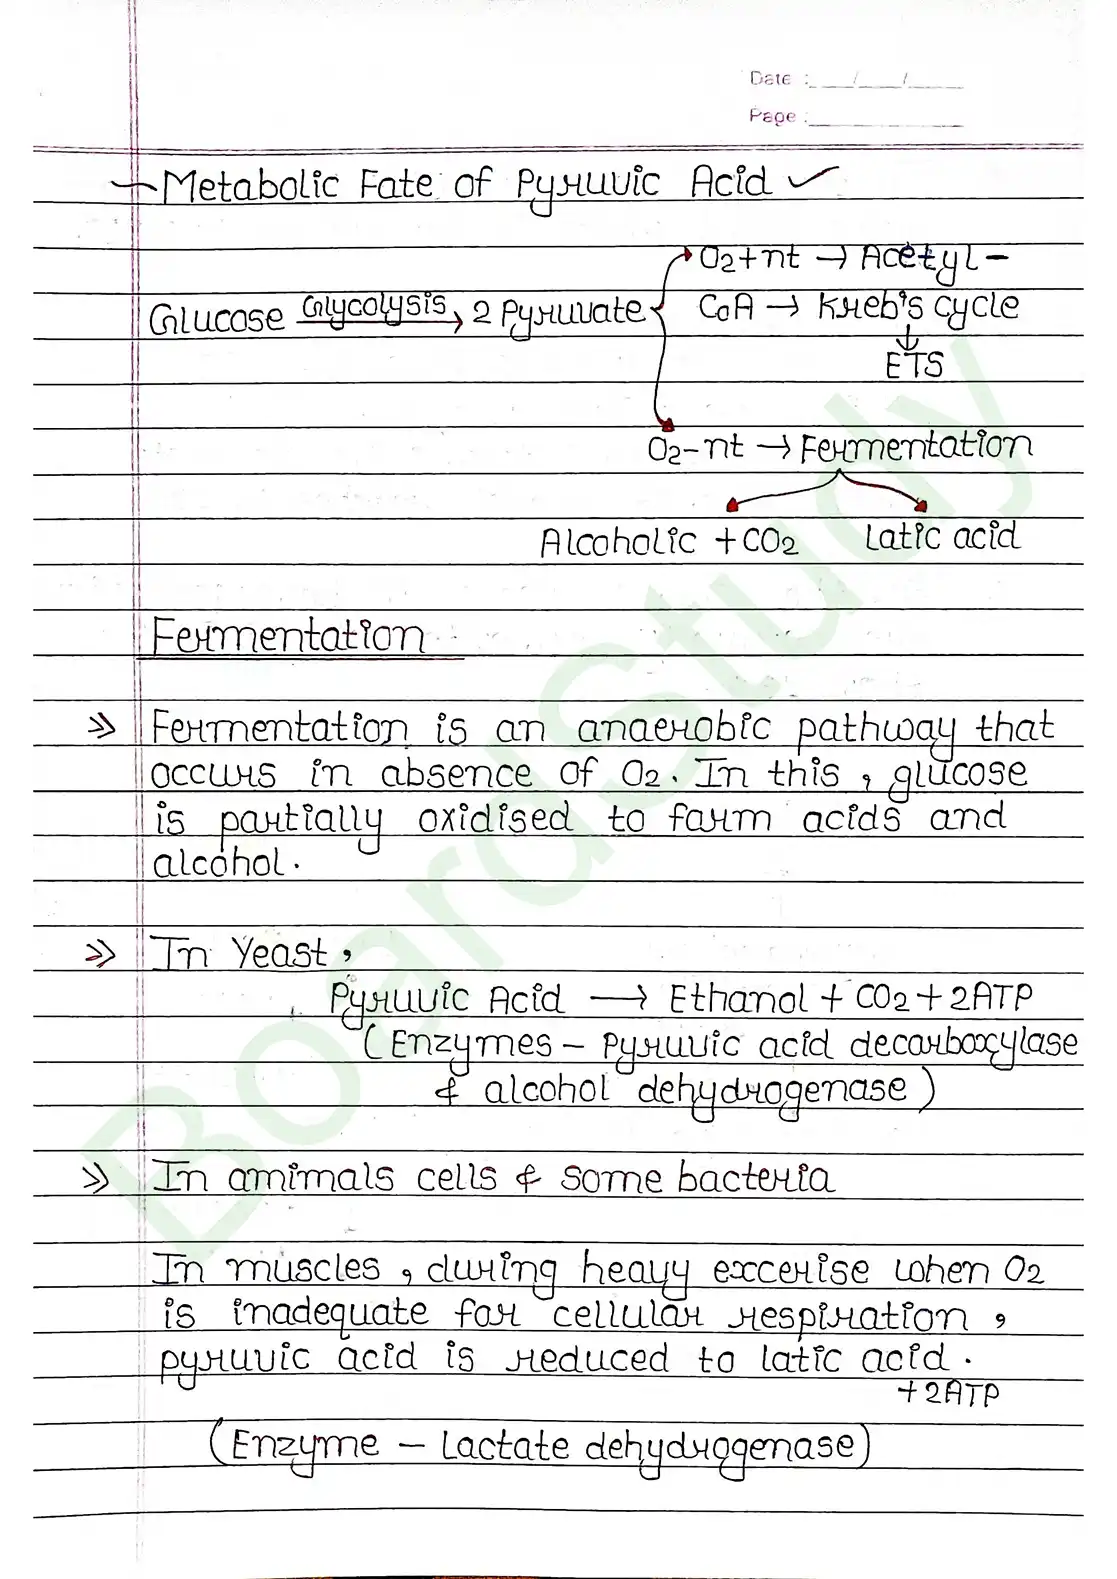 Date : ___/___/____
Page : ________
Metabolic Fate of Pyruvic Acid ✓
O2+nt → Acetyl-
Glucose Glycolysis → 2 Pyruvate CoA → Kreb's cycle
↓
ETS
O2-nt → Fermentation
Alcoholic + CO2 Latic acid
Fermentation
>> Fermentation is an anaerobic pathway that
occurs in absence of O2. In this, glucose
is partially oxidised to form acids and
alcohol.
>> In Yeast,
Pyruvic Acid → Ethanol + CO2 + 2ATP
(Enzymes - Pyruvic acid decarboxylase
& alcohol dehydrogenase)
>> In amimals cells & some bacteria
In muscles, during heavy excerise when O2
is inadequate for cellular respiration,
pyruvic acid is reduced to latic acid.
+ 2ATP
(Enzyme - Lactate dehydrogenase)
BoardStudy